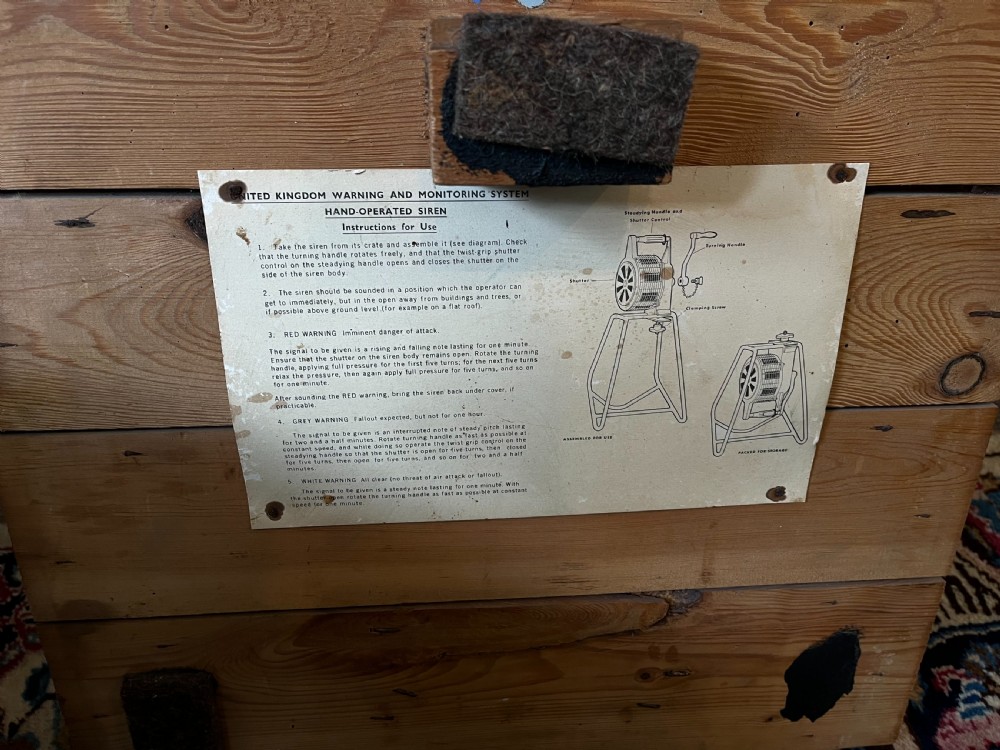 UNITED KINGDOM WARNING AND MONITORING SYSTEM
HAND-OPERATED SIREN
Instructions for Use
1. Take the siren from its crate and assemble it (see diagram). Check
that the turning handle rotates freely, and that the twist-grip shutter
control on the steadying handle opens and closes the shutter on the
side of the siren body.
2. The siren should be sounded in a position which the operator can
get to immediately, but in the open away from buildings and trees, or
if possible above ground level (for example on a flat roof).
3. RED WARNING Imminent danger of attack.
The signal to be given is a rising and falling note lasting for one minute.
Ensure that the shutter on the siren body remains open. Rotate the turning
handle, applying full pressure for the first five turns; for the next five turns
relax the pressure, then again apply full pressure for five turns, and so on
for one minute.
After sounding the RED warning, bring the siren back under cover, if
practicable.
4. GREY WARNING Fallout expected, but not for one hour.
The signal to be given is an interrupted note of steady pitch lasting
for two and a half minutes. Rotate turning handle as fast as possible at
constant speed, and while doing so operate the twist grip control on the
steadying handle so that the shutter is open for five turns, then closed
for five turns, then open for five turns, and so on for two and a half
minutes.
5. WHITE WARNING All clear (no threat of air attack or fallout).
The signal to be given is a steady note lasting for one minute. With
the shutter open rotate the turning handle as fast as possible at constant
speed for one minute.
Steadying Handle and
Shutter Control
Turning Handle
Shutter
Clamping Screw
ASSEMBLED FOR USE
PACKED FOR STORAGE